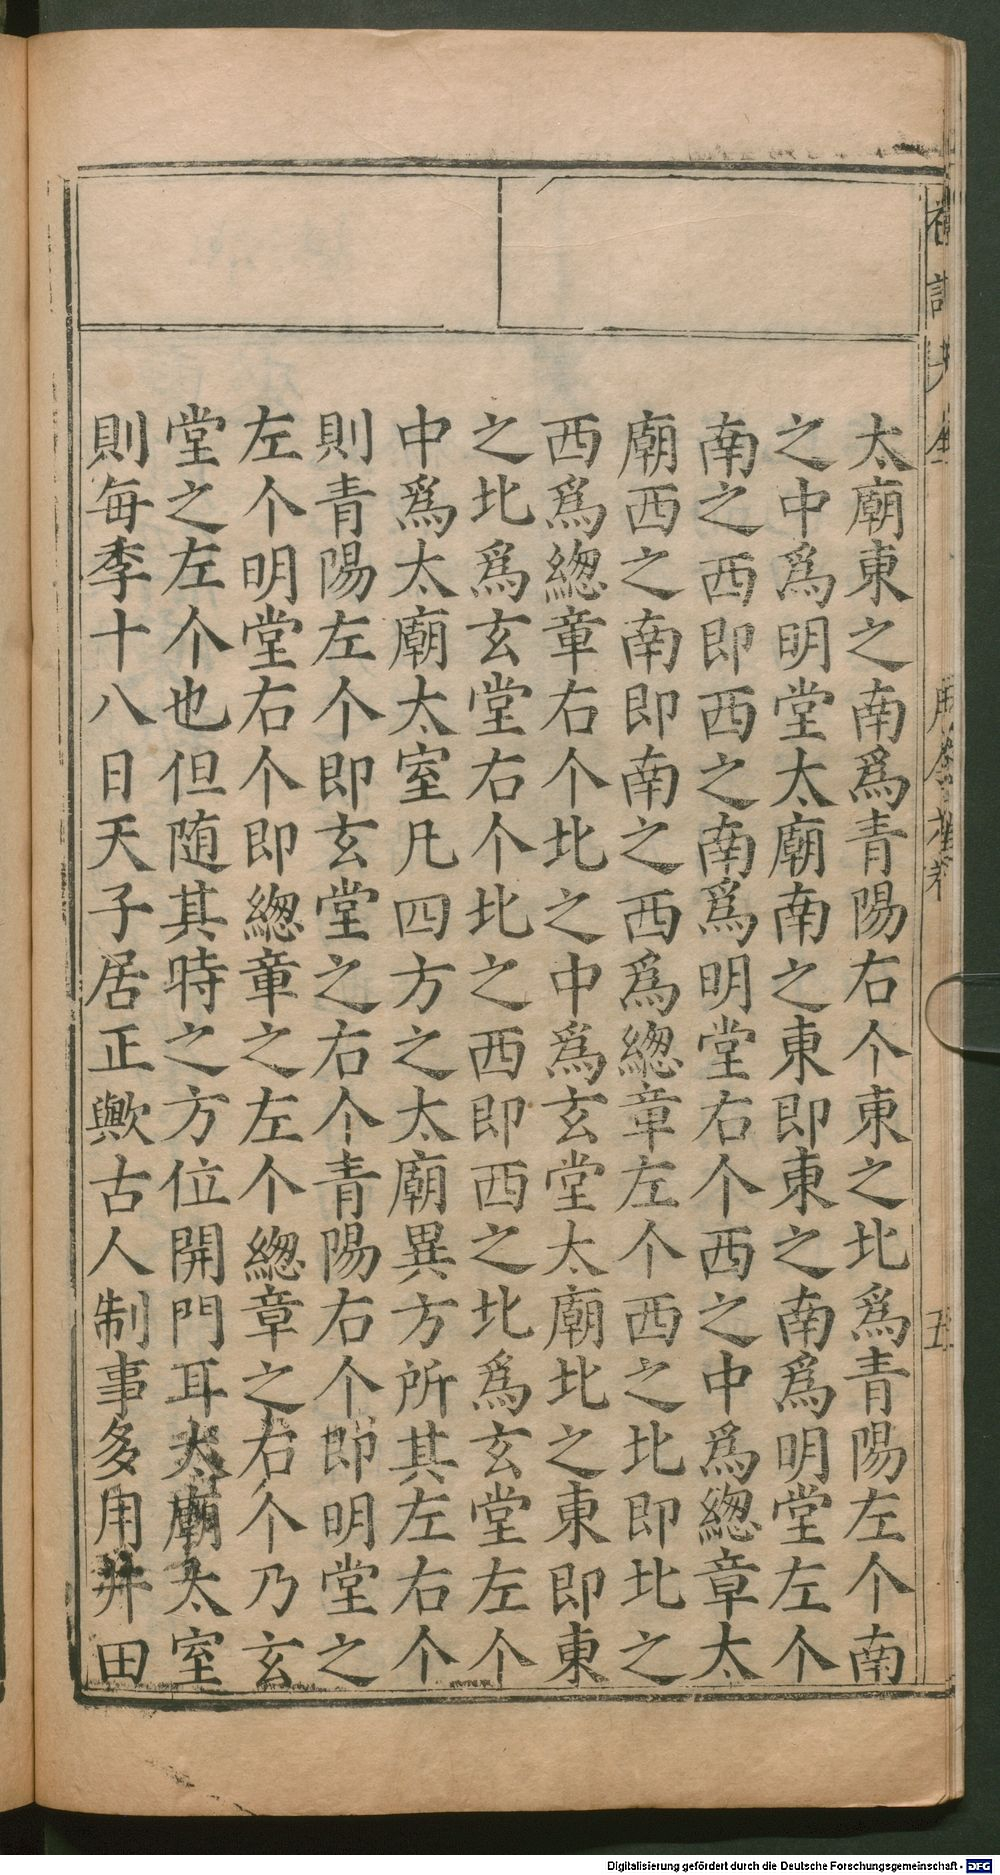 太廟東之南爲青陽右个東之北爲青陽左个南
之中爲明堂太廟南之東即東之南爲明堂左个
南之西即西之南爲明堂右个西之中爲緫章太
廟西之南即南之西爲緫章左个西之北即北之
西爲緫章右个北之中爲玄堂太廟北之東即東
之北爲玄堂右个北之西即西之北爲玄堂左个
中爲太廟太室凡四方之太廟異方所其左右个
則青陽左个即玄堂之右个青陽右个即明堂之
左个明堂右个即緫章之左个緫章之右个乃玄
堂之左个也但随其時之方位開門耳太廟太室
則每季十八日天子居正歟古人制事多用井田
五
Digitalisierung gefördert durch die Deutsche Forschungsgemeinschaft - DFG